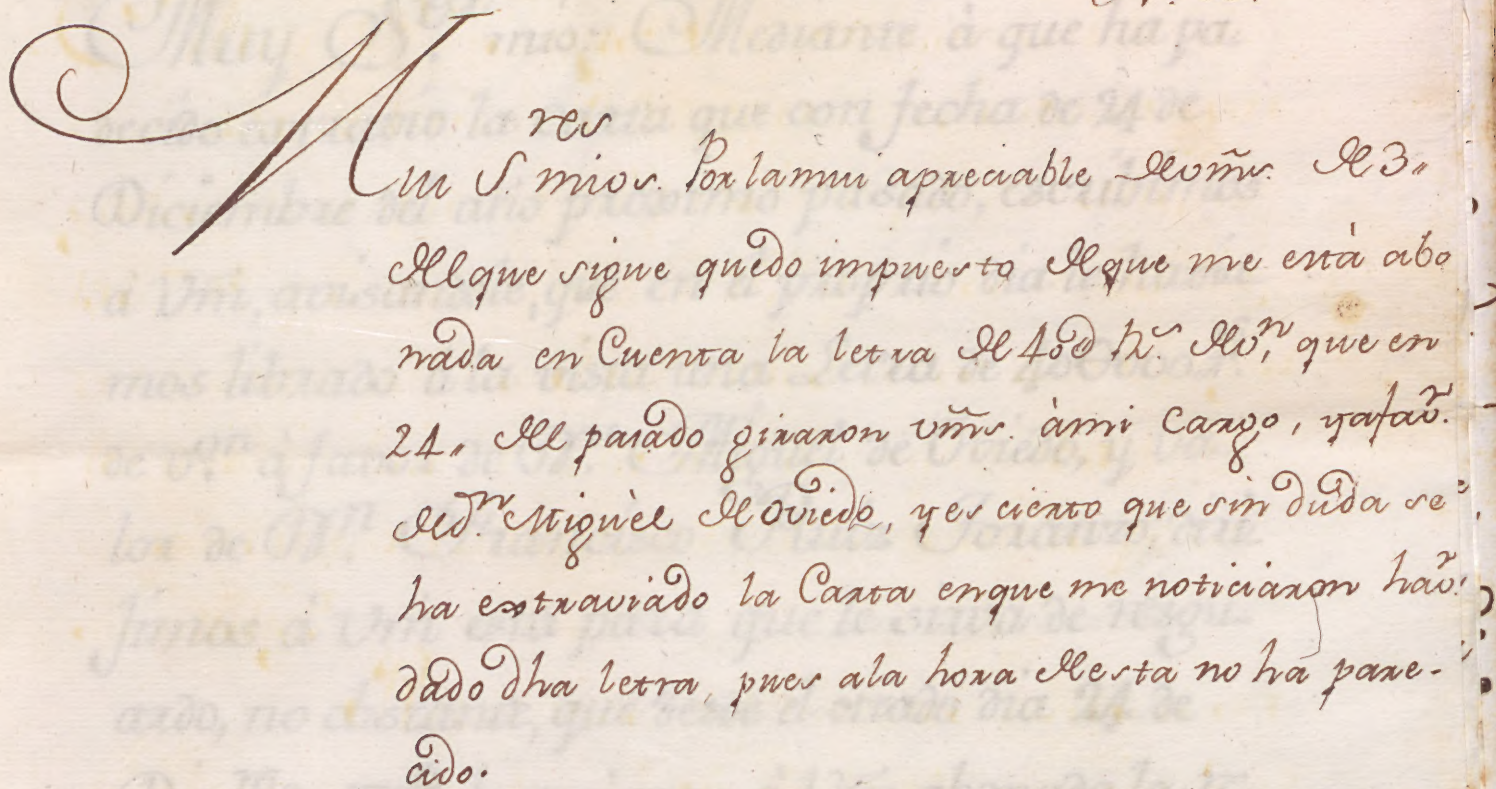 Mui S.res mios. Por la mui apreciable de vm̃s. de 3,,
del que sigue quedo impuesto de que me està abo
nada en Cuenta la letra de 40@ R.s de v.n, que en
24,, del pasado giraron vm̃s. à mi Cargo, y a fav.r
de d.n Miguèl de Oviedo, y es cierto que sin duda se
ha extraviado la Carta en que me noticiaron hav.r
dado dha letra, pues a la hora de esta no ha pare-
cido.